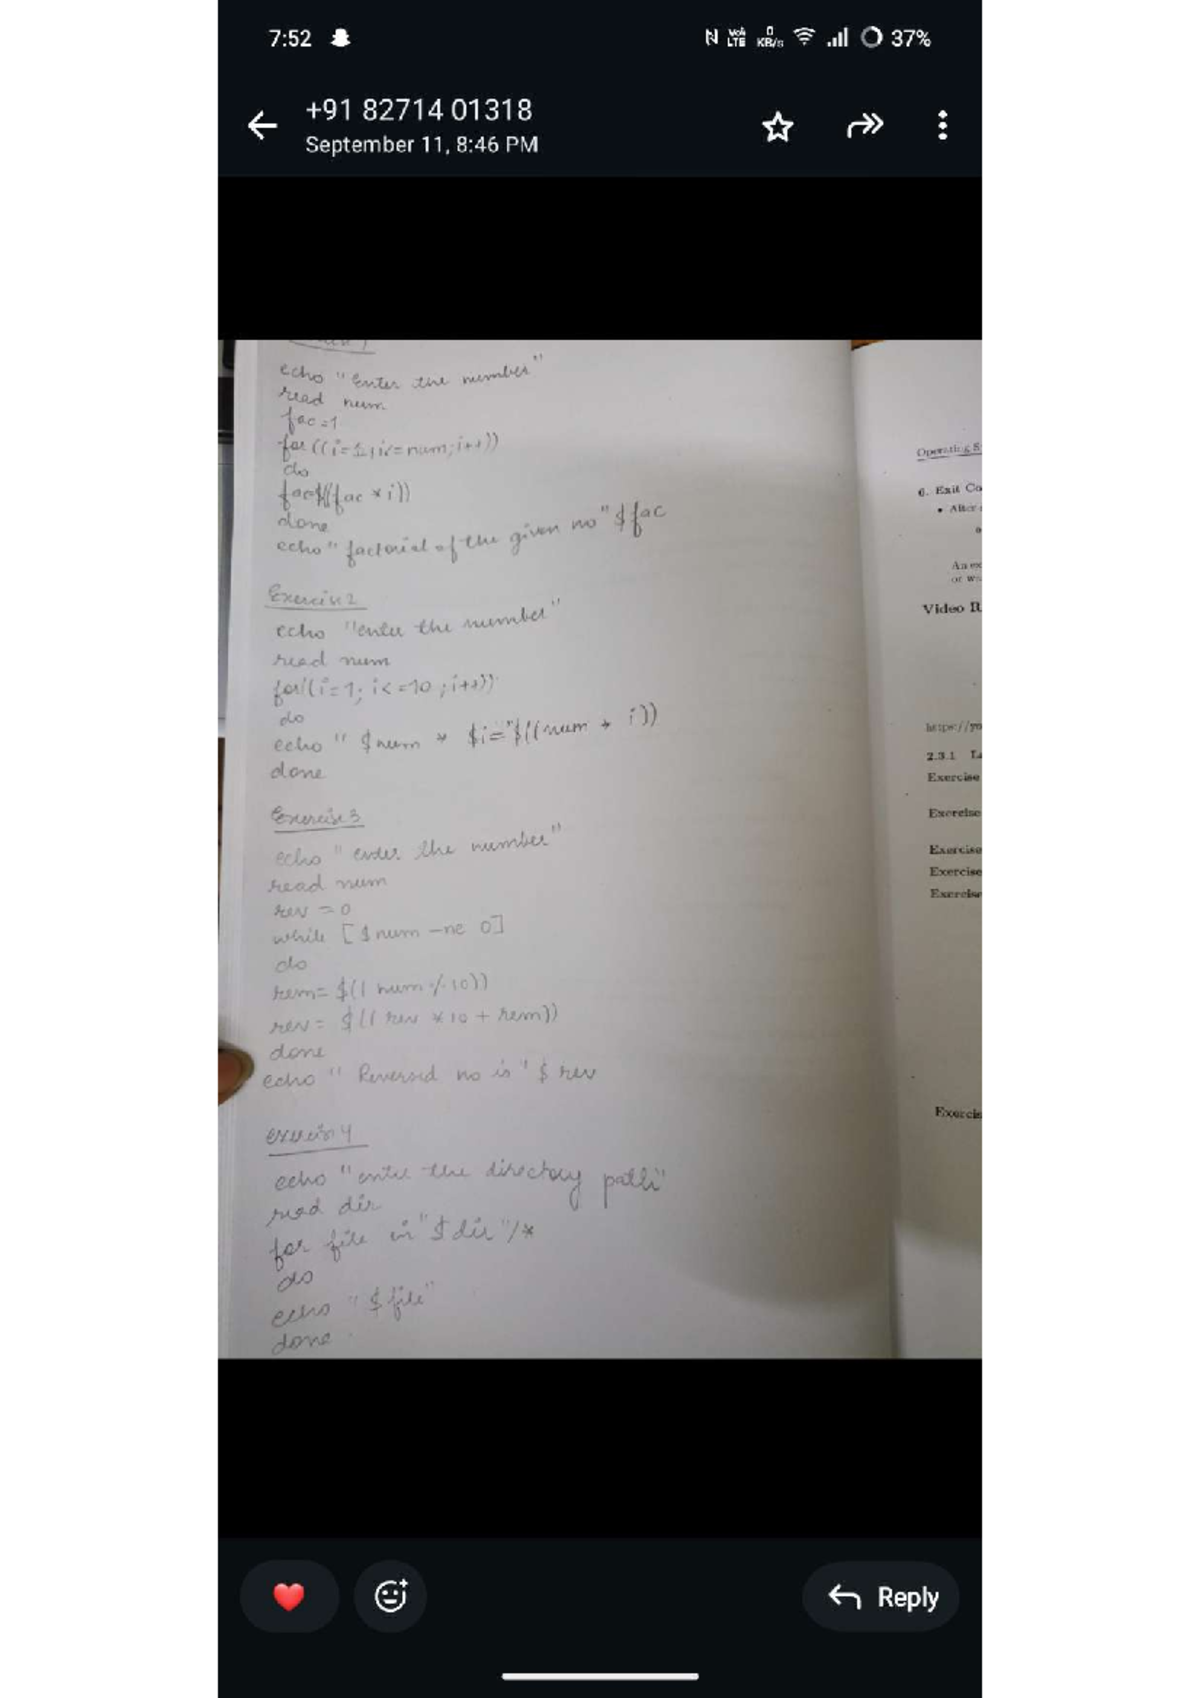 7:52
Vo) LTE 0 KB/s 37%
+91 82714 01318
September 11, 8:46 PM
echo "Enter the number"
read num
fac=1
for ((i=1;i<=num;i++))
do
fac=$((fac * i))
done
echo "factorial of the given no" $fac
Exercise 2
echo "enter the number"
read num
for((i=1; i<=10; i++))
do
echo "$num * $i="$((num * i))
done
Exercise 3
echo "enter the number"
read num
rev=0
while [$num -ne 0]
do
rem=$((num % 10))
rev=$((rev *10 + rem))
done
echo "Reversed no is" $rev
exercise 4
echo "enter the directory path"
read dir
for file in "$dir"/*
do
echo "$file"
done
Operating S
6. Exit Co
• Alter
An ex
or w
Video R
https://yo
2.3.1 L
Exercise
Exercise
Exercise
Exercise
Exercise
Exercis
Reply